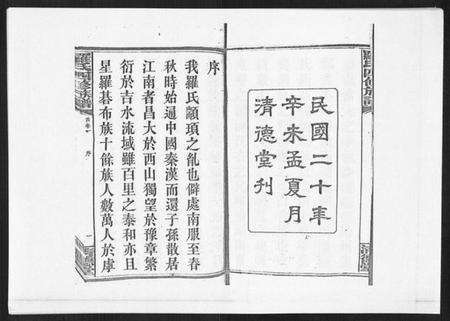 民國二十年
辛未孟夏月
清德堂刊
羅氏四修族譜
序
我羅氏顓頊之胤也僻處南服至春
秋時始通中國秦漢而還子孫散居
江南者昌大於西山獨望於豫章繁
衍於吉水流域雖百里之泰和亦且
星羅碁布族十餘族人數萬人於虖
序
一